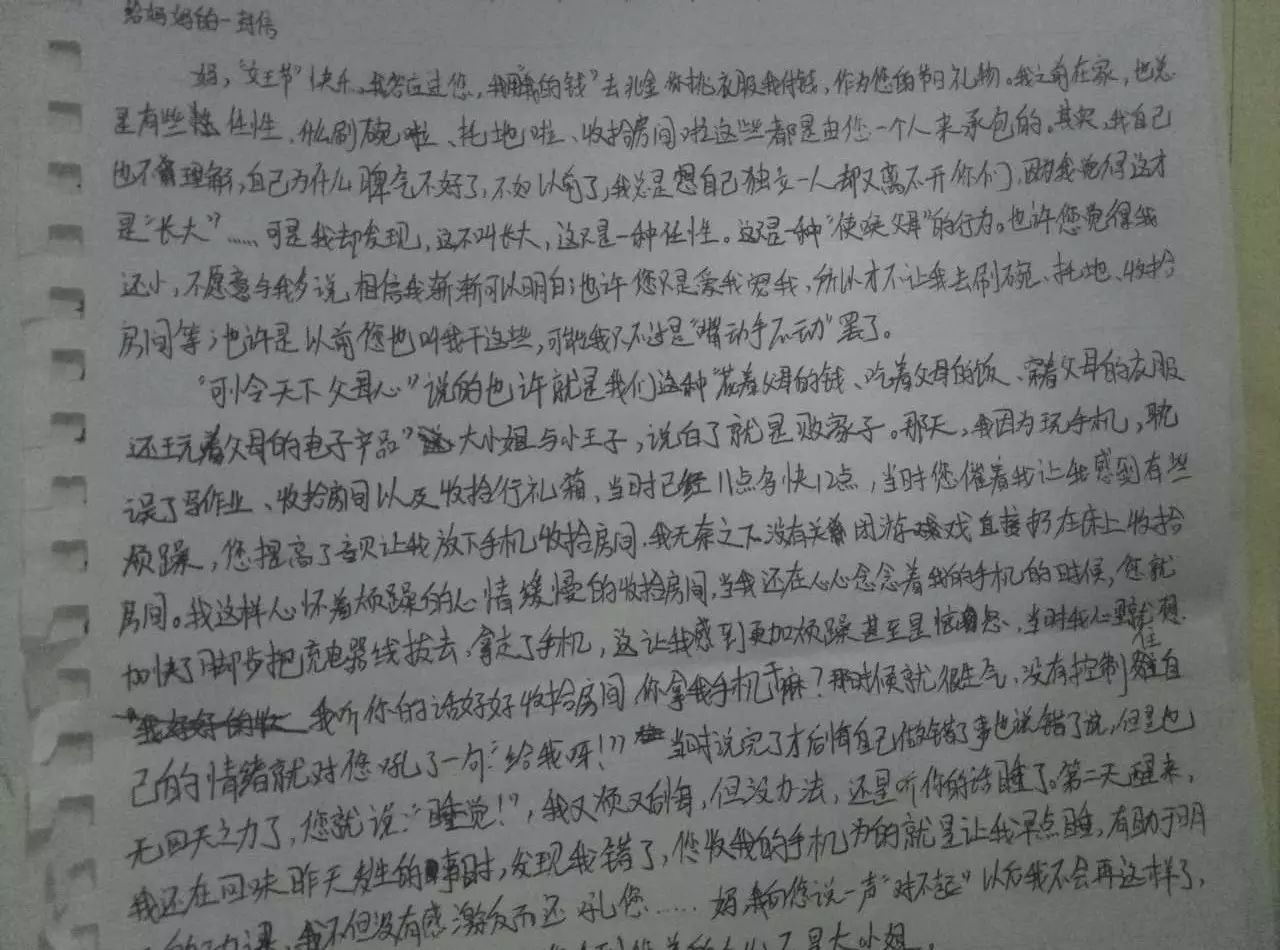 给妈妈的一封信
妈，“女王节”快乐。我答应过您，我用“我的钱”去 你挑衣服我付钱，作为您的节日礼物。我之前在家，也总
是有些 任性，什么刷碗啦、托地啦、收拾房间啦这些都是由您一个人来承包的。其实，我自己
也不理解，自己为什么脾气不好了，不如以前了，我总是想自己独立一人却又离不开你们，因为我觉得这才
是“长大”……可是我却发现，这不叫长大，这只是一种任性。这只是一种“使唤父母”的行为。也许您觉得我
还小，不愿意与我多说，相信我渐渐可以明白；也许您只是爱我宠我，所以才不让我去刷碗、托地、收拾
房间等；也许是以前您也叫我干这些，可能我只不过是“嘴动手不动”罢了。
“可怜天下父母心”说的也许就是我们这种“花着父母的钱、吃着父母的饭、穿着父母的衣服
还玩着父母的电子产品”大小姐与小王子，说白了就是败家子。那天，我因为玩手机，耽
误了写作业、收拾房间以及收拾行礼箱，当时已经11点多快12点，当时您催着我让我感到有些
烦躁，您提高了音贝让我放下手机收拾房间，我无奈之下没有关闭游戏直接扔在床上收拾
房间。我这样心怀着烦躁的心情缓慢的收拾房间，当我还在心心念念着我的手机的时候，您就
加快了脚步把充电器线拔去，拿走了手机，这让我感到更加烦躁甚至是恼怒，当时我心里就想
我听你的话好好收拾房间，你拿我手机干嘛？那时候就很生气，没有控制住自
己的情绪就对您吼了一句：“给我呀！”当时说完了才后悔自己做错了事也说错了话，但是也
无回天之力了，您就说：“睡觉！”，我又烦又后悔，但没办法，还是听你的话睡了。第二天醒来，
我还在回味昨天发生的事时，发现我错了，您收我的手机为的就是让我早点睡，有助于明
的功课，我不但没有感激反而还吼您……妈，我向您说一声“对不起”以后我不会再这样了，
不是大小姐，